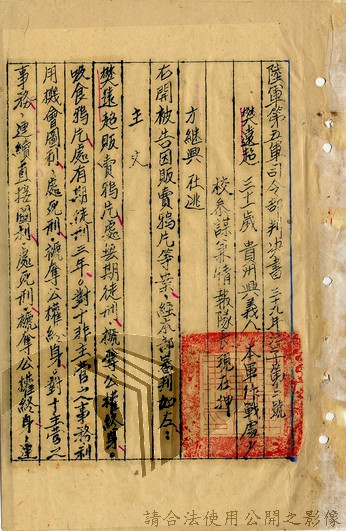 陸軍第五軍司令部判決書 三十九年 字第三號
樊遠超 三十一歲 貴州興義人 本軍作戰處少
校參謀兼情報隊長 現在押
方繼興 在逃
右開被告因販賣鴉片等案、經本部審判如左：
主文
樊遠超販賣鴉片處無期徒刑、褫奪公權終身。
吸食鴉片處有期徒刑三年。對于非主管之事務利
用機會圖利、處死刑、褫奪公權終身。對于主管之
事務、連續直接圖利、處死刑、褫奪公權終身、連
請合法使用公開之影像